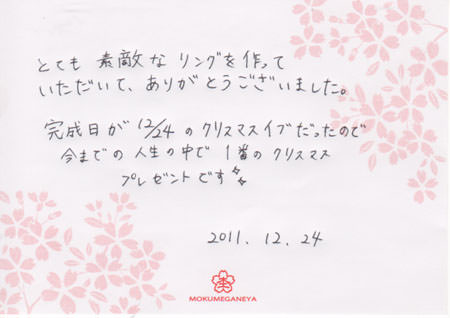 とても 素敵な リングを作って
いただいて、ありがとうございました。
完成日が 12/24 の クリスマスイブだったので
今までの 人生の中で 1番の クリスマス
プレゼントです
2011. 12. 24
MOKUMEGANEYA